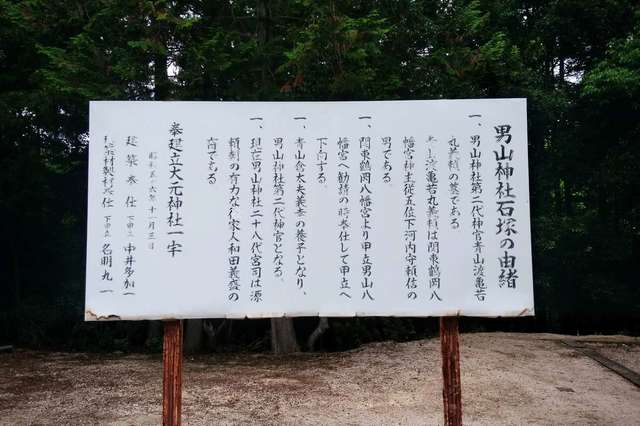 男山神社石塚の由緒
一、男山神社第二代神官青山渡亀若
丸義頼の墓である
亀若丸義頼は関東鶴岡八
幡宮神主従五位下河内守頼信の
男である
一、関東鶴岡八幡宮より甲立男山八
幡宮へ勧請の時奉仕して甲立へ
下向する
一、青山念太夫義幸の養子となり、
男山神社第二代神官となる。
一、現在男山神社二十八代宮司は源
頼朝の有力な御家人和田義盛の
裔である
奉建立大元神社一宇
昭和五十六年十一月三日
建築奉仕 下甲立 中井多加一
建築材製材奉仕 下甲立 名明九一